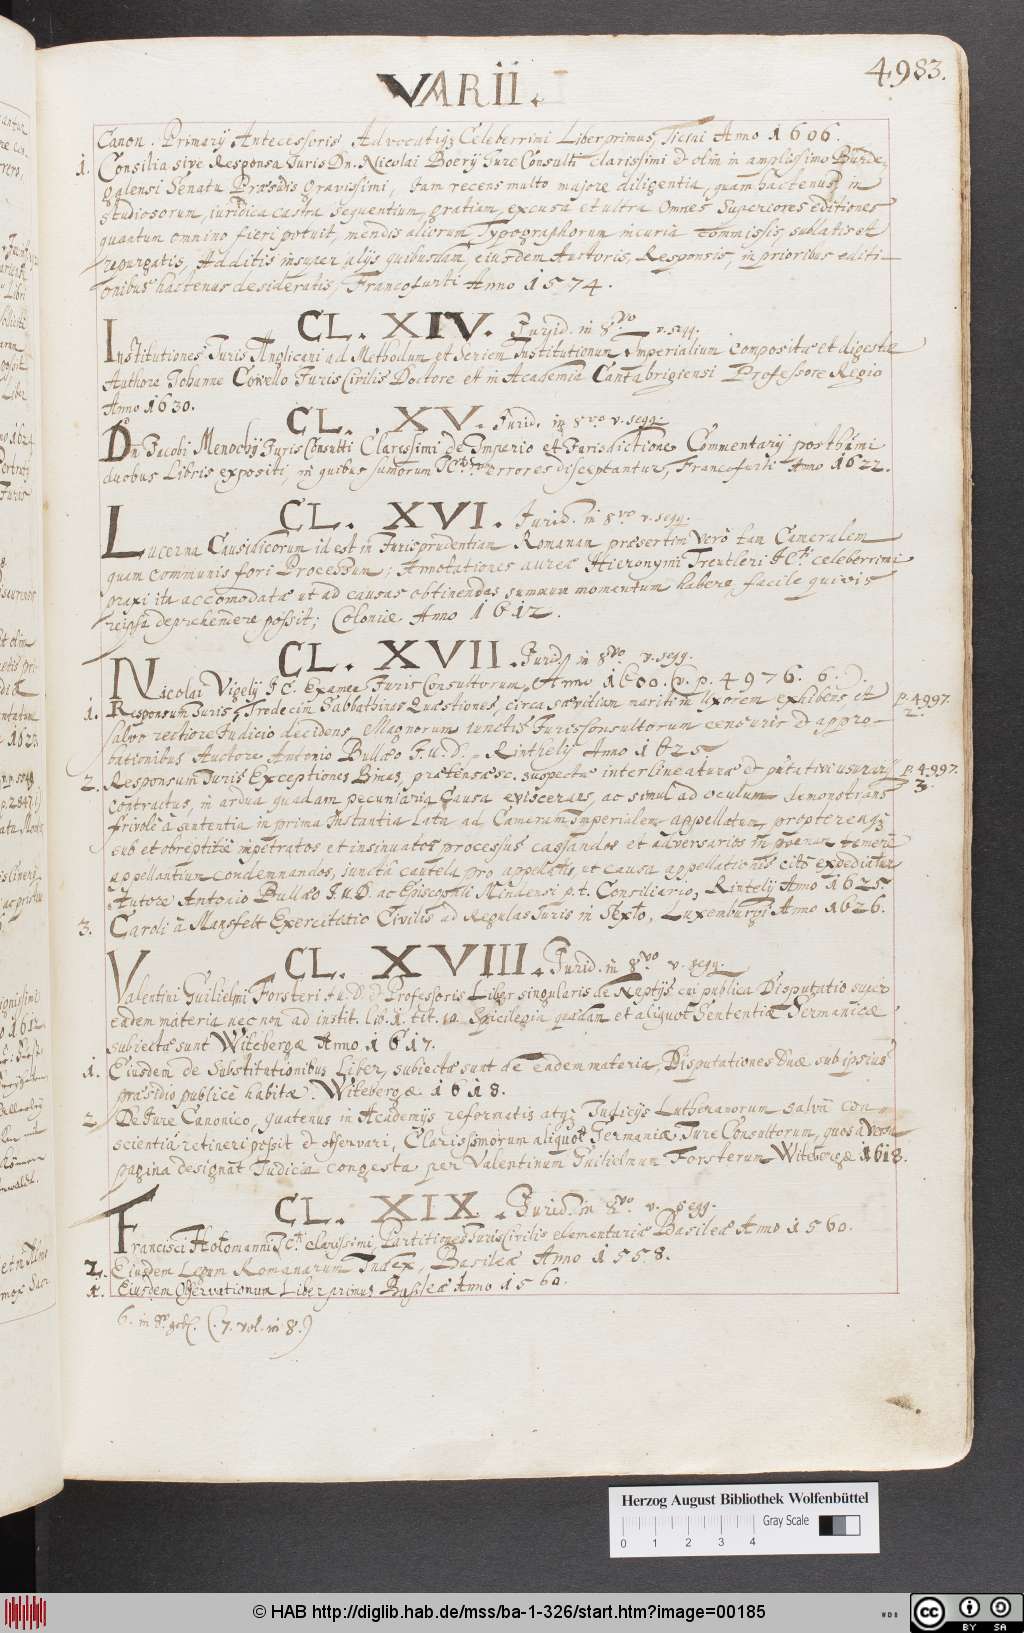 VARII.
4983.
Canon. Primarij Antecessoris Advocatiq; Celeberrimi Liber primus, Ticini Anno 1606.
1. Consilia sive Responsa Juris Dn. Nicolai Boerij Jure Consulti clarissimi et olim in amplissimo Burde-
galensi Senatu Præsidis gravissimi, Jam recens multo majore diligentia, quam hactenus, in
studiosorum, juridica castra sequentium, gratiam, excusa et ultra omnes superiores editiones
quantum omnino fieri potuit, mendis aliorum Typographorum incuria commissis, sublatis et
repurgatis, Additis insuper alijs quibusdam eiusdem Auctoris, Responsis, in prioribus editi-
onibus hactenus desideratis, Francofurti Anno 1574.
CL. XIV. Jurid. in 8vo v. seqq.
Institutiones Juris Anglicani ad Methodum et seriem Institutionum Imperialium compositæ et digestæ
Authore Johanne Cowello Juris Civilis Doctore et in Academia Cantabrigiensi Professore Regio
Anno 1630.
CL. XV. Jurid. in 8vo v. seqq.
Dn Jacobi Menochij Juris Consulti Clarissimi de Imperio et Jurisdictione Commentarij posthumi
duobus Libris expositi, in quibus sumorum JCtorum errores diseptantur, Francofurti Anno 1622.
CL. XVI. Jurid. in 8vo v. seqq.
Lucerna Causidicorum id est in Jurisprudentiam Romanam præsertim vero tam Cameralem
quam communis fori Processum; Annotationes aureæ Hieronymi Treutleri JCti celeberrimi
praxi ita accomodatæ ut ad causas obtinendas summum momentum habere, facile quivis
reipsa deprehendere possit; Coloniæ Anno 1612.
CL. XVII. Jurid. in 8vo v. seqq.
Nicolai Vigelij JC. Examen Juris Consultorum, Anno 1600. (v. p. 4976. 6.)
1. Responsum Juris, Tredecim Sabbathinas Quæstiones, circa sævitiam mariti in uxorem exhibens, et
p. 4997. 2.
salvo rectiore Judicio decidens Magnorum iunctis Jurisconsultorum censuris et appro-
bationibus Auctore Antonio Bullæo J.U.D. Rinthelij Anno 1625
2. Responsum Juris Exceptiones Binas, prætensæ sc. suspectæ interlineaturæ et putativi usurarij
p. 4997. 3.
contractus, in ardua quadam pecuniaria Causa eviscerans, ac simul ad oculum demonstrans
frivole à sententia in prima Instantia lata ad Cameram Imperialem appellatum, proptereaq;
sub et obreptitiè impetratos et insinuatos processus cassandos et adversarios in pœnam temerè
appellantium condemnandos, iunctâ cautelâ pro appellatis, ut causa appellationis citò expediatur
Autore Antonio Bullæo J.U.D. ac Episcopali Mindensi p.t. Consiliario, Rintelij Anno 1625.
3. Caroli à Mansfelt Exercitatio Civilis ad Regulas Juris in Sexto, Luxemburgi Anno 1626.
CL. XVIII. Jurid. in 8vo v. seqq.
Valentini Guilielmi Forsteri J.U.D. et Professoris Liber singularis de Nuptijs cui publica Disputatio super
eadem materia nec non ad instit. lib. 1. tit. 10 Spicilegia quædam et aliquot Sententiæ Germanicæ
subiectæ sunt Witebergæ Anno 1617.
1. Eiusdem de Substitutionibus Liber, subiectæ sunt de eadem materia, Disputationes Duæ sub ipsius
præsidio publicè habitæ. Witebergæ 1618.
2 De Jure Canonico, quatenus in Academijs reformatis atq; Judicijs Lutheranorum salvâ con-
scientiâ retineri possit et observari, Clarissimorum aliquot Germaniæ Jure Consultorum, quos aversa
pagina designat Judicia congesta per Valentinum Guilielmum Forsterum Witebergæ 1618.
CL. XIX. Jurid. in 8vo v. seqq.
Francisci Hotomanni JCti clarissimi, Partitiones Juris Civilis elementariæ Basileæ Anno 1560.
2. Eiusdem Legum Romanarum Index, Basileæ Anno 1558.
Eiusdem Observationum Liber primus Basileæ Anno 1560.
(. 7. vol. in 8.)
Herzog August Bibliothek Wolfenbüttel
Gray Scale
0 1 2 3 4
© HAB http://diglib.hab.de/mss/ba-1-326/start.htm?image=00185
cc BY SA